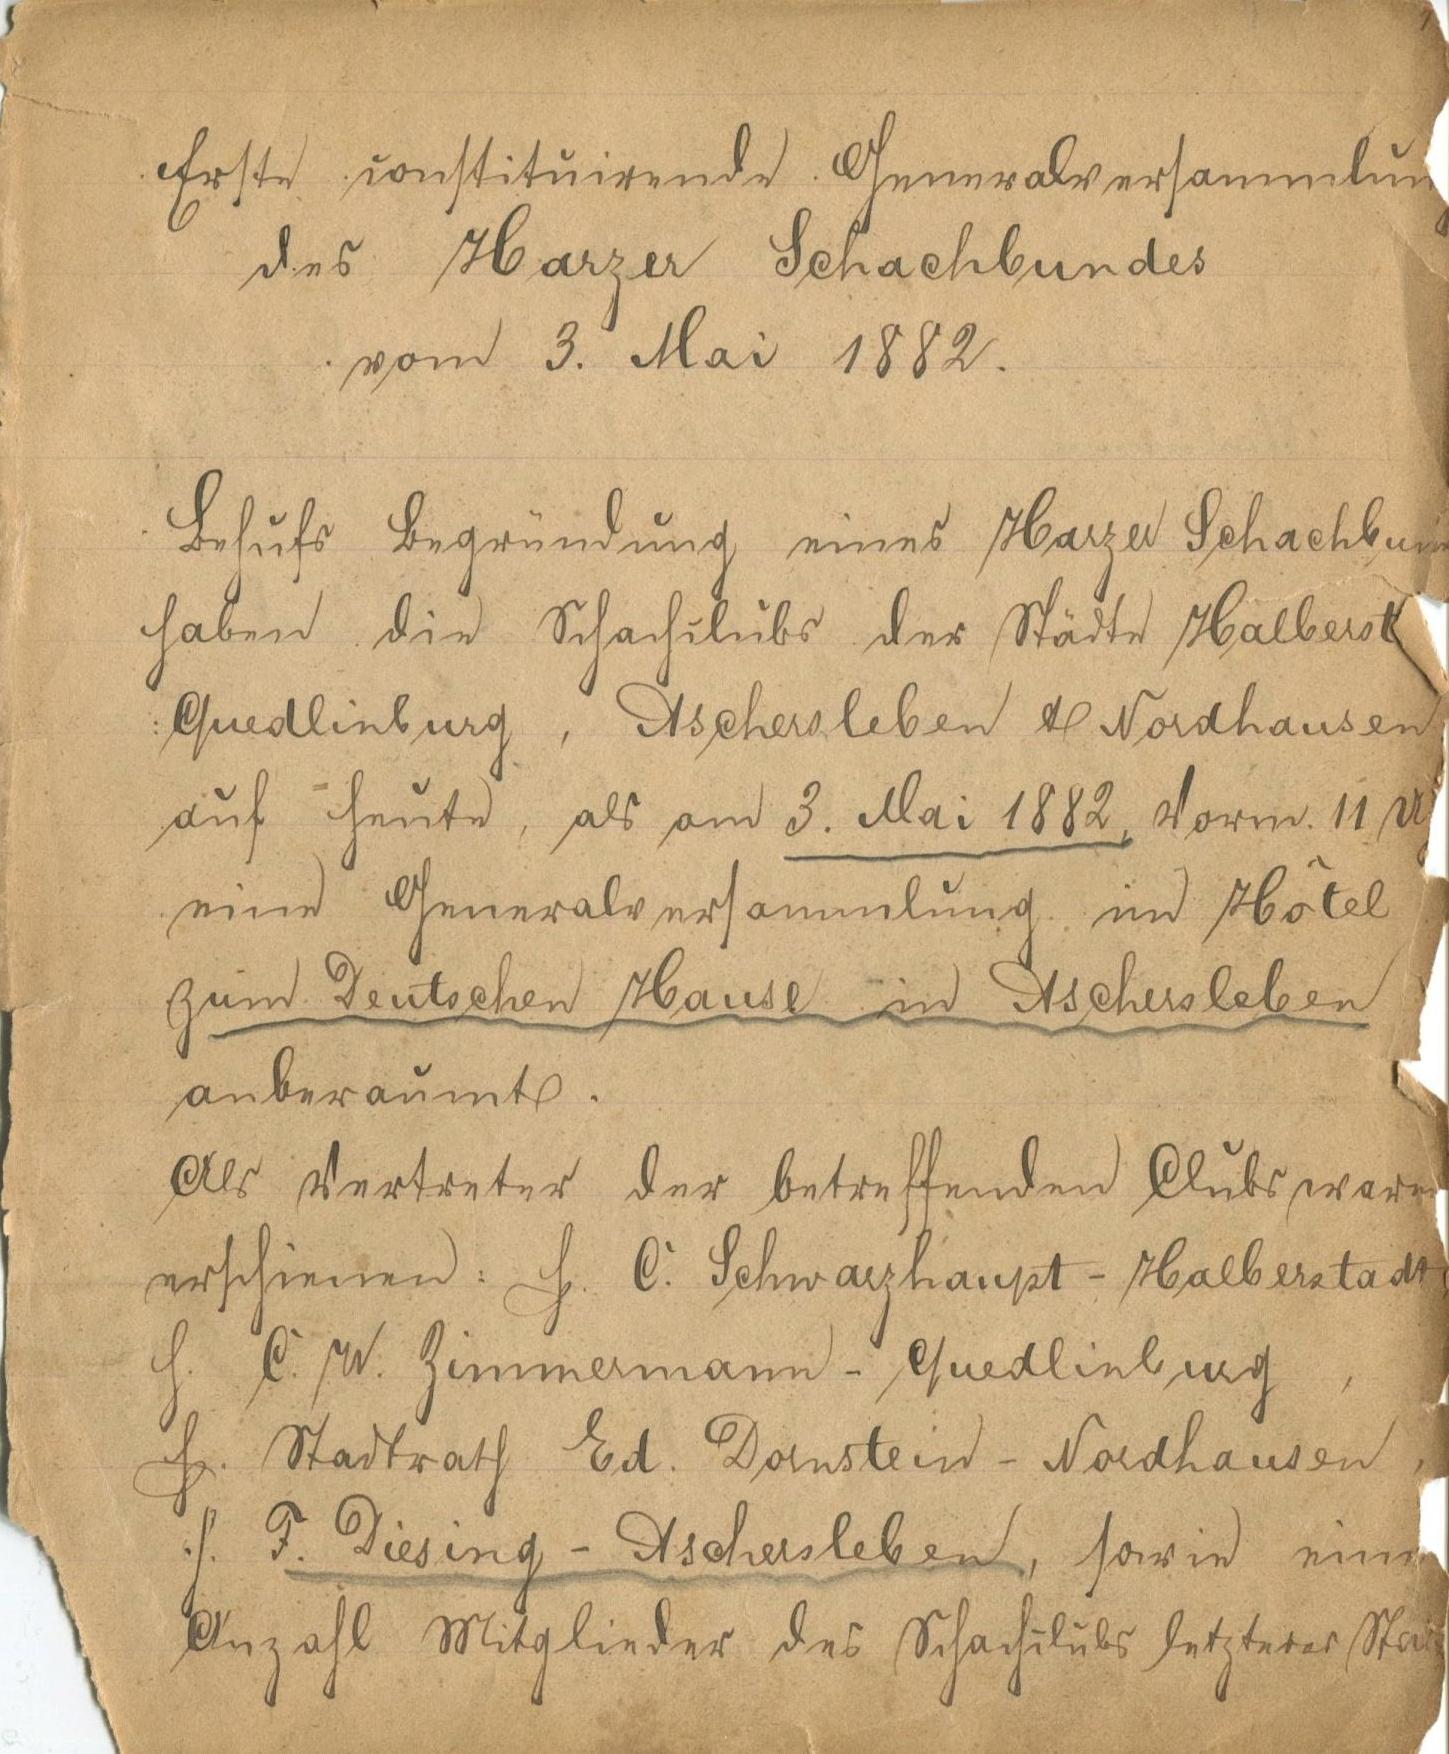 Erste constituirende Generalversammlun
des Harzer Schachbundes
vom 3. Mai 1882.
Behufs Begründung eines Harzer Schachbun
haben die Schachclubs der Städte Halberst
Quedlinburg, Aschersleben & Nordhausen
auf heute, als am 3. Mai 1882, Vorm. 11 U
eine Generalversammlung im Hôtel
zum Deutschen Hause in Aschersleben
anberaumt.
Als Vertreter der betreffenden Clubs waren
erschienen: H. C. Schwarzhaupt - Halberstadt
H. C. W. Zimmermann - Quedlinburg,
H. Stadtrath Ed. Dornstein - Nordhausen,
H. F. Diesing - Aschersleben, sowie eine
Anzahl Mitglieder des Schachclubs letzterer Sta